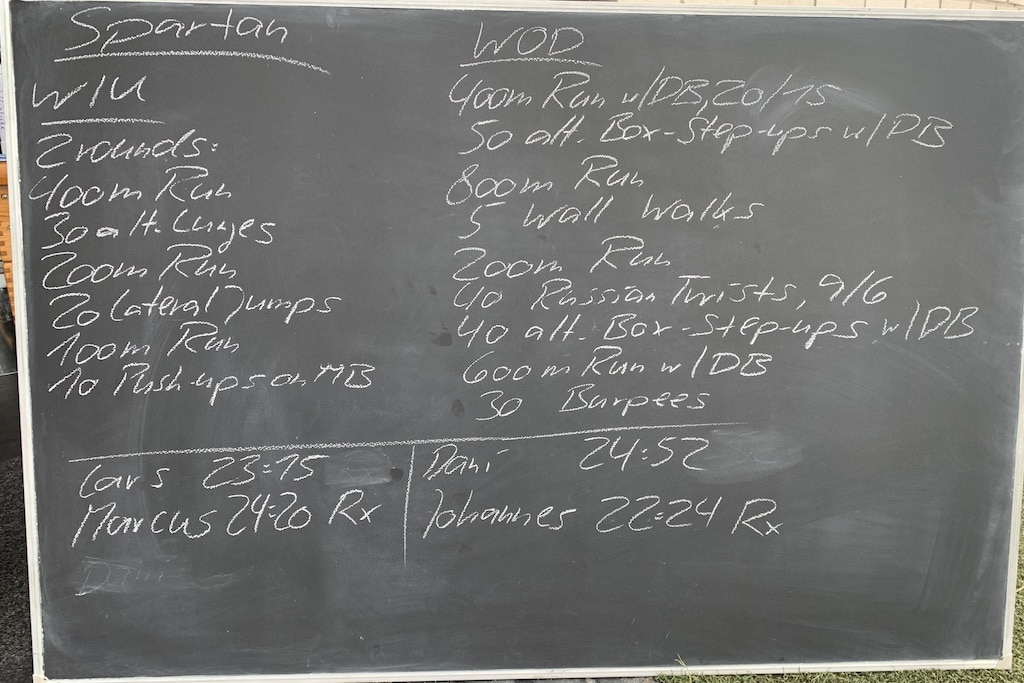 Spartan
W/U
2 rounds:
400m Run
30 alt. Lunges
200m Run
20 Lateral Jumps
100m Run
10 Push-ups on MB
WOD
400m Run w/DB, 20/15
50 alt. Box-Step-ups w/DB
800m Run
5 Wall Walks
200m Run
40 Russian Twists, 9/6
40 alt. Box-Step-ups w/DB
600m Run w/DB
30 Burpees
Lars 23:15
Marcus 24:20 Rx
Dani 24:52
Johannes 22:24 Rx